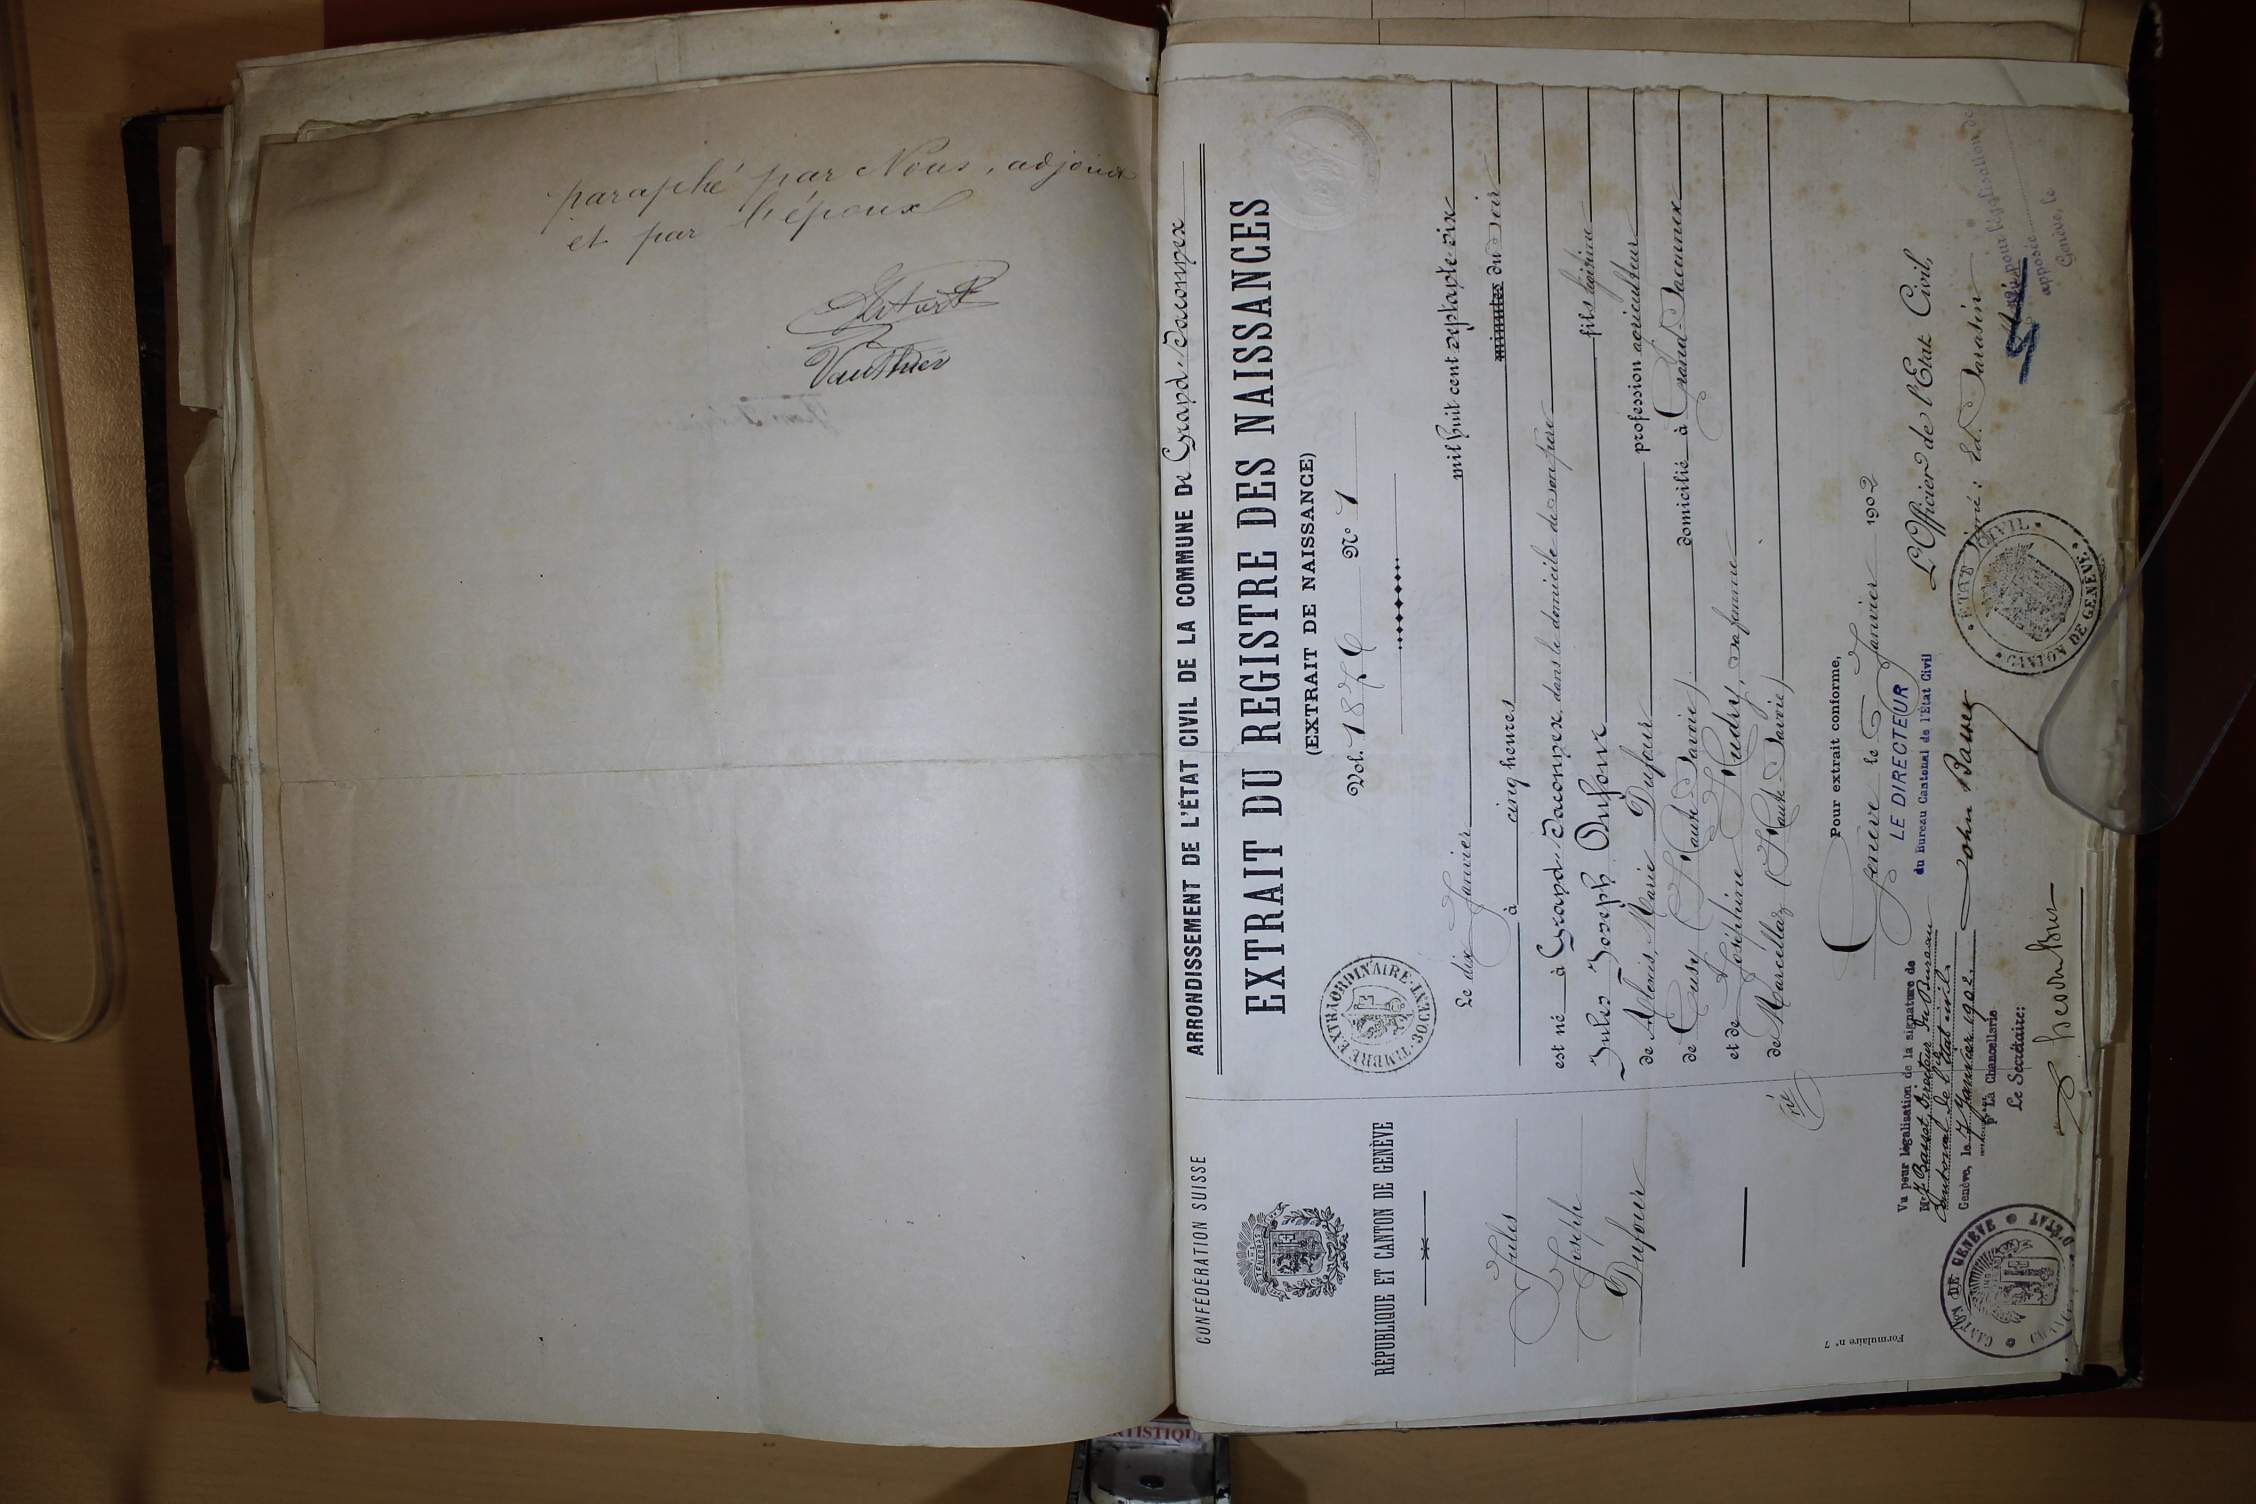 paraphé par Nous, adjoint
et par l'époux
Vauthier
CONFÉDÉRATION SUISSE
POST TENEBRAS LUX
RÉPUBLIQUE ET CANTON DE GENÈVE
Jules
Joseph
Dufour
Formulaire n° 7
ARRONDISSEMENT DE L'ÉTAT CIVIL DE LA COMMUNE De Grand-Saconnex
EXTRAIT DU REGISTRE DES NAISSANCES
(EXTRAIT DE NAISSANCE)
TIMBRE EXTRAORDINAIRE
Vol. 1876 N° 1
Le dix Janvier mil huit cent septante six
à cinq heures minutes du soir
est né à Grand-Saconnex, dans le domicile de son père
Jules Joseph Dufour fils légitime
de Alexis, Marie Dufour profession agriculteur
de Cusy (Haute-Savoie) domicilié à Grand-Saconnex
et de Joséphine Hudry, sa femme
de Marcellaz (Haute-Savoie)
Pour extrait conforme,
Genève le 7 Janvier 1902
LE DIRECTEUR
du Bureau Cantonal de l'Etat Civil
L'Officier de l'Etat Civil,
signé: Ed. Sarasin
John Basset
ETAT CIVIL
CANTON DE GENÈVE
Vu pour légalisation de la signature de
Mr J. Basset, Directeur du Bureau
Cantonal de l'Etat civil.
Genève, le 7 Janvier 1902.
Pr La Chancellerie
Le Secrétaire:
CANTON DE GENÈVE
Vu pour législation de
apposée
Genève, le